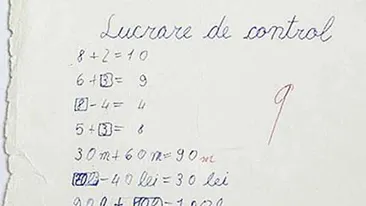 Lucrare de control
8+2=10
6+3= 9
8-4= 4
5+3= 8
9
30m+60m=90m
-40 lei=30 lei